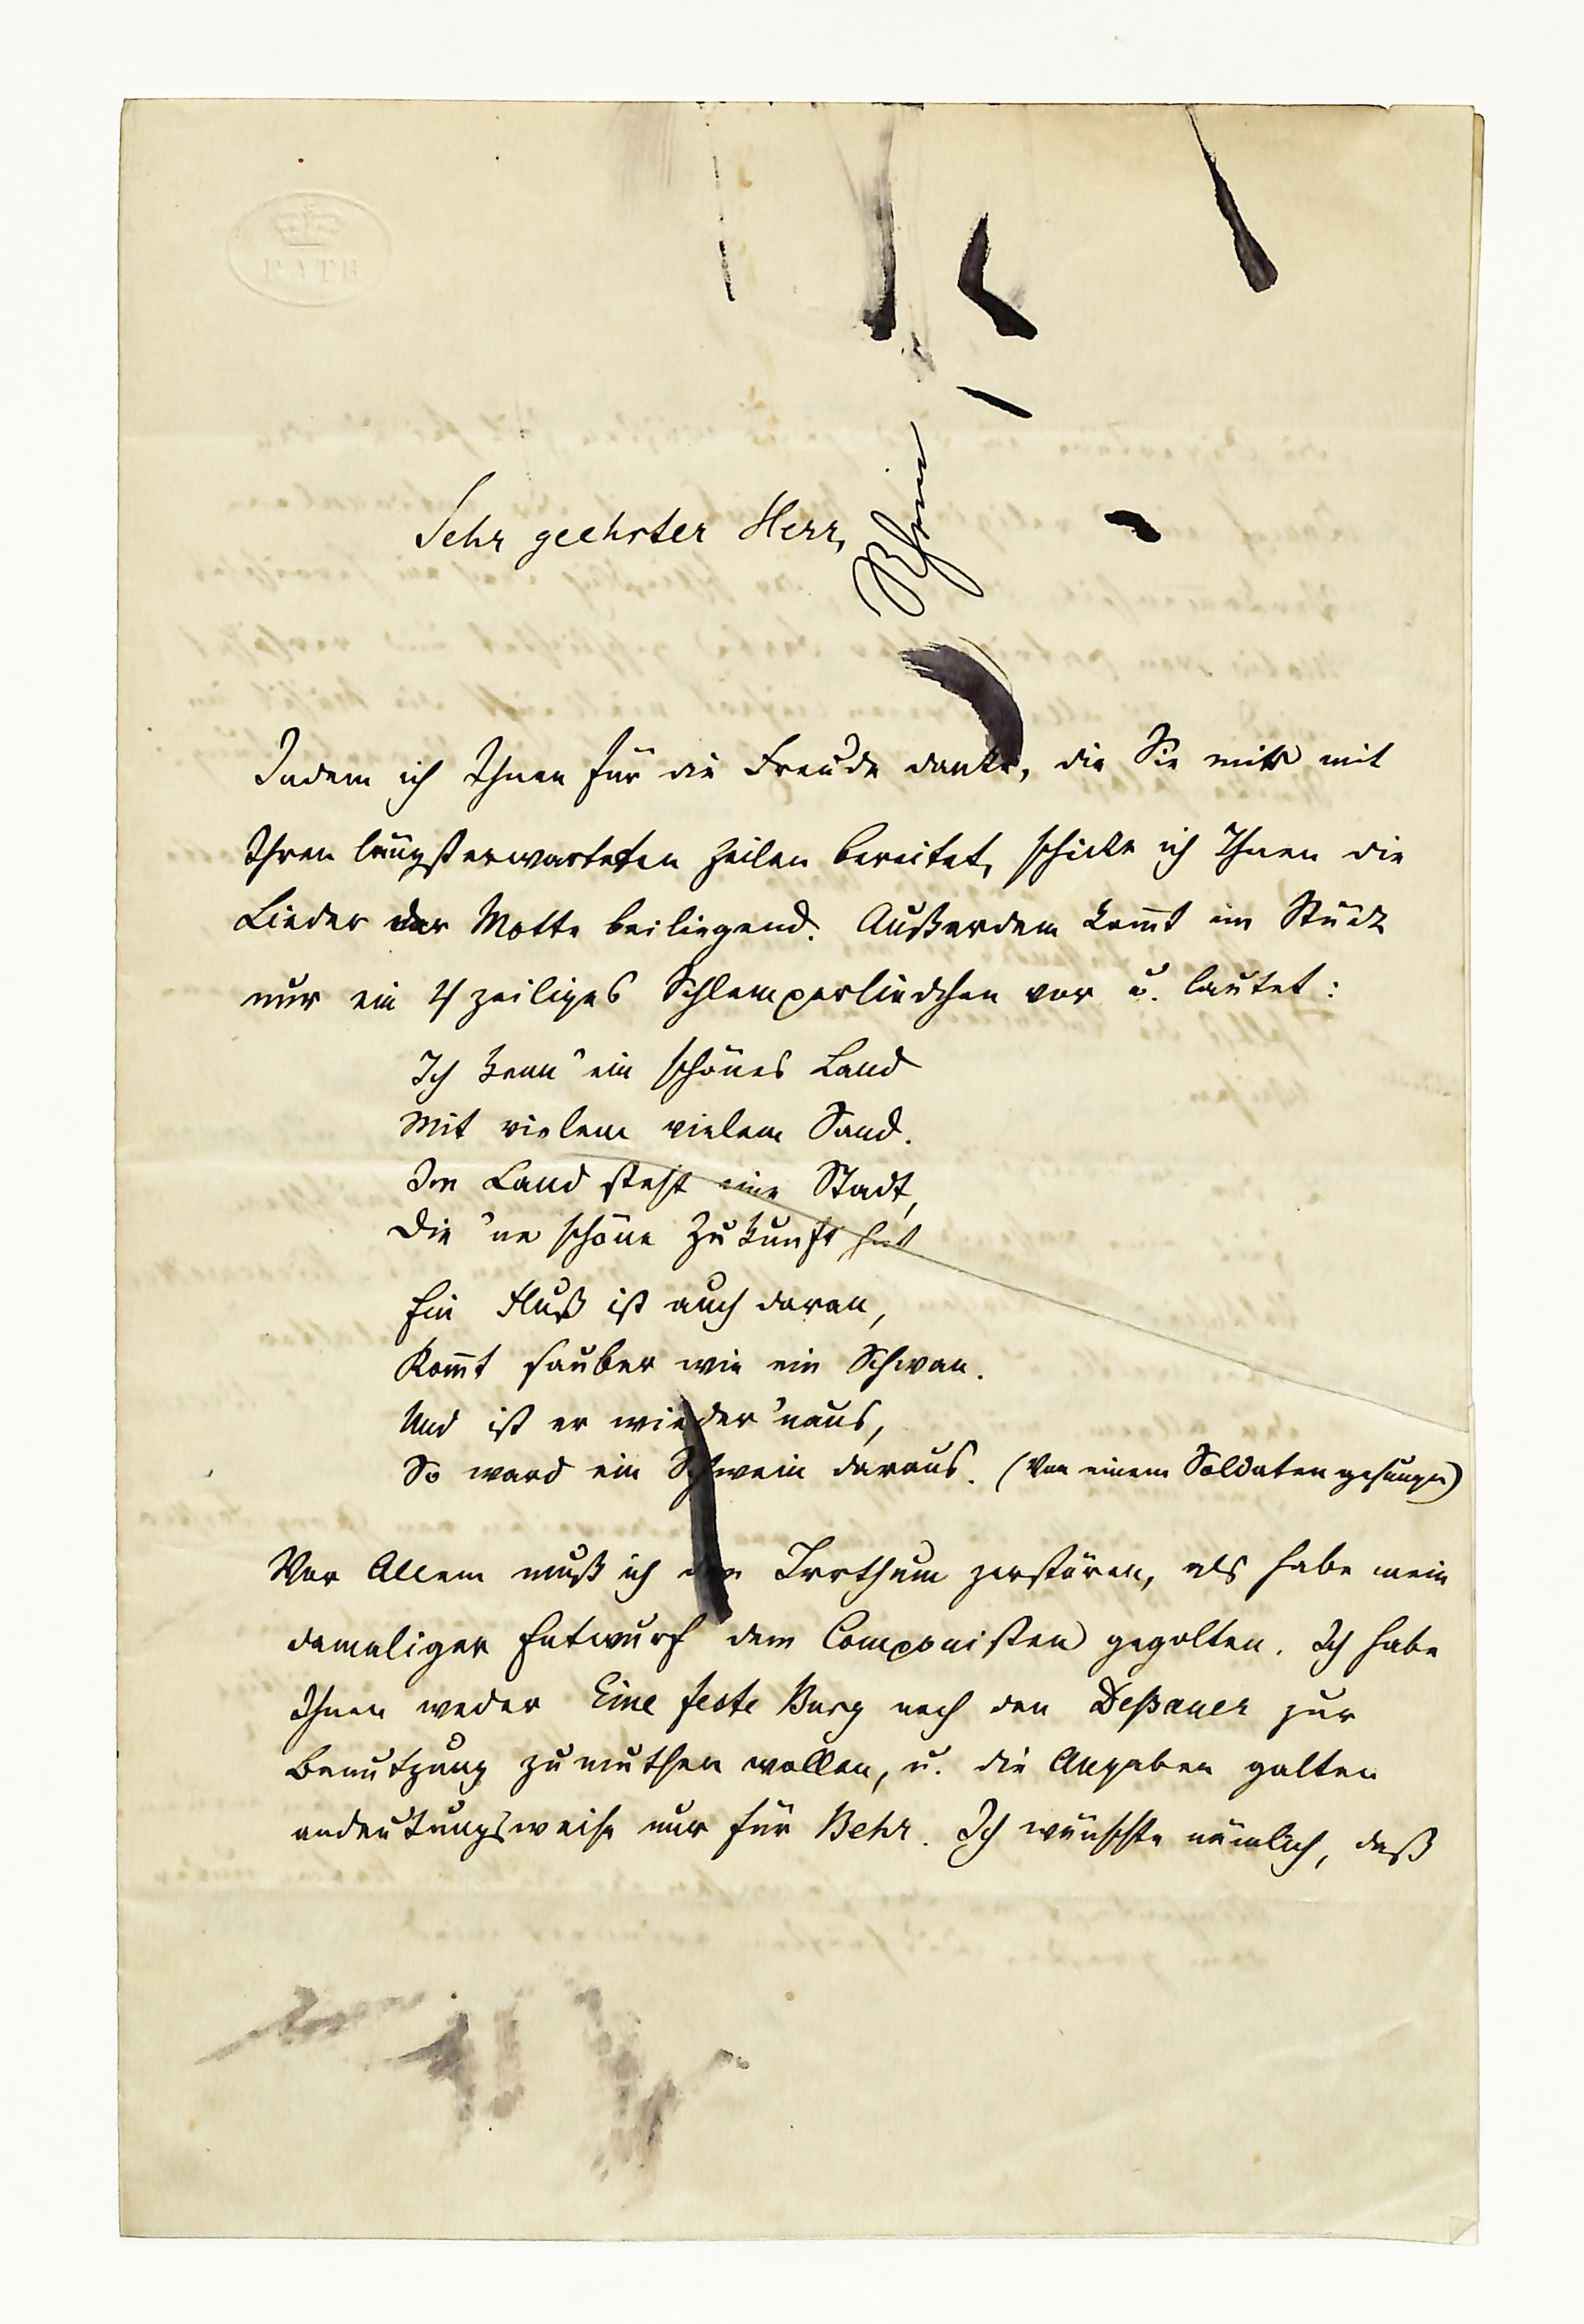 BATH
Sehr geehrter Herr,
Indem ich Ihnen für die Freude danke, die Sie mir mit
Ihren längst erwarteten Zeilen bereitet, schicke ich Ihnen die
Lieder der Motte beiliegend. Außerdem kom̅t im Stück
nur ein 4 zeiliges Schlemperliedchen vor u. lautet:
Ich kenn' ein schönes Land
Mit vielem vielem Sand.
Im Land steht eine Stadt,
Die 'ne schöne Zukunft hat
Ein Fluß ist auch daran,
Kom̅t sauber wie ein Schwan.
Und ist er wieder 'naus,
So ward ein Schwein daraus. (Von einem Soldaten gesungen)
Vor Allem muß ich den Irrthum zerstören, als habe mein
damaliger Entwurf dem Componisten gegolten. Ich habe
Ihnen weder Eine feste Burg noch den Deßauer zur
Benutzung zumuthen wollen, u. die Angaben galten
andeutungsweise nur für Behr. Ich wünschte nämlich, daß